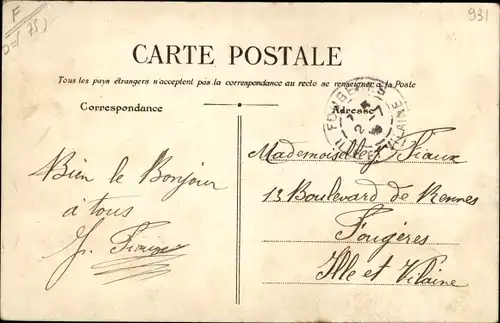 F
931
CARTE POSTALE
Tous les pays étrangers n'acceptent pas la correspondance au recto se renseigner à la Poste
Correspondance
Adresse
Bien le Bonjour
à tous
Mademoiselle J. Fiaux
13 Boulevard de Rennes
Fougères
Ille et Vilaine